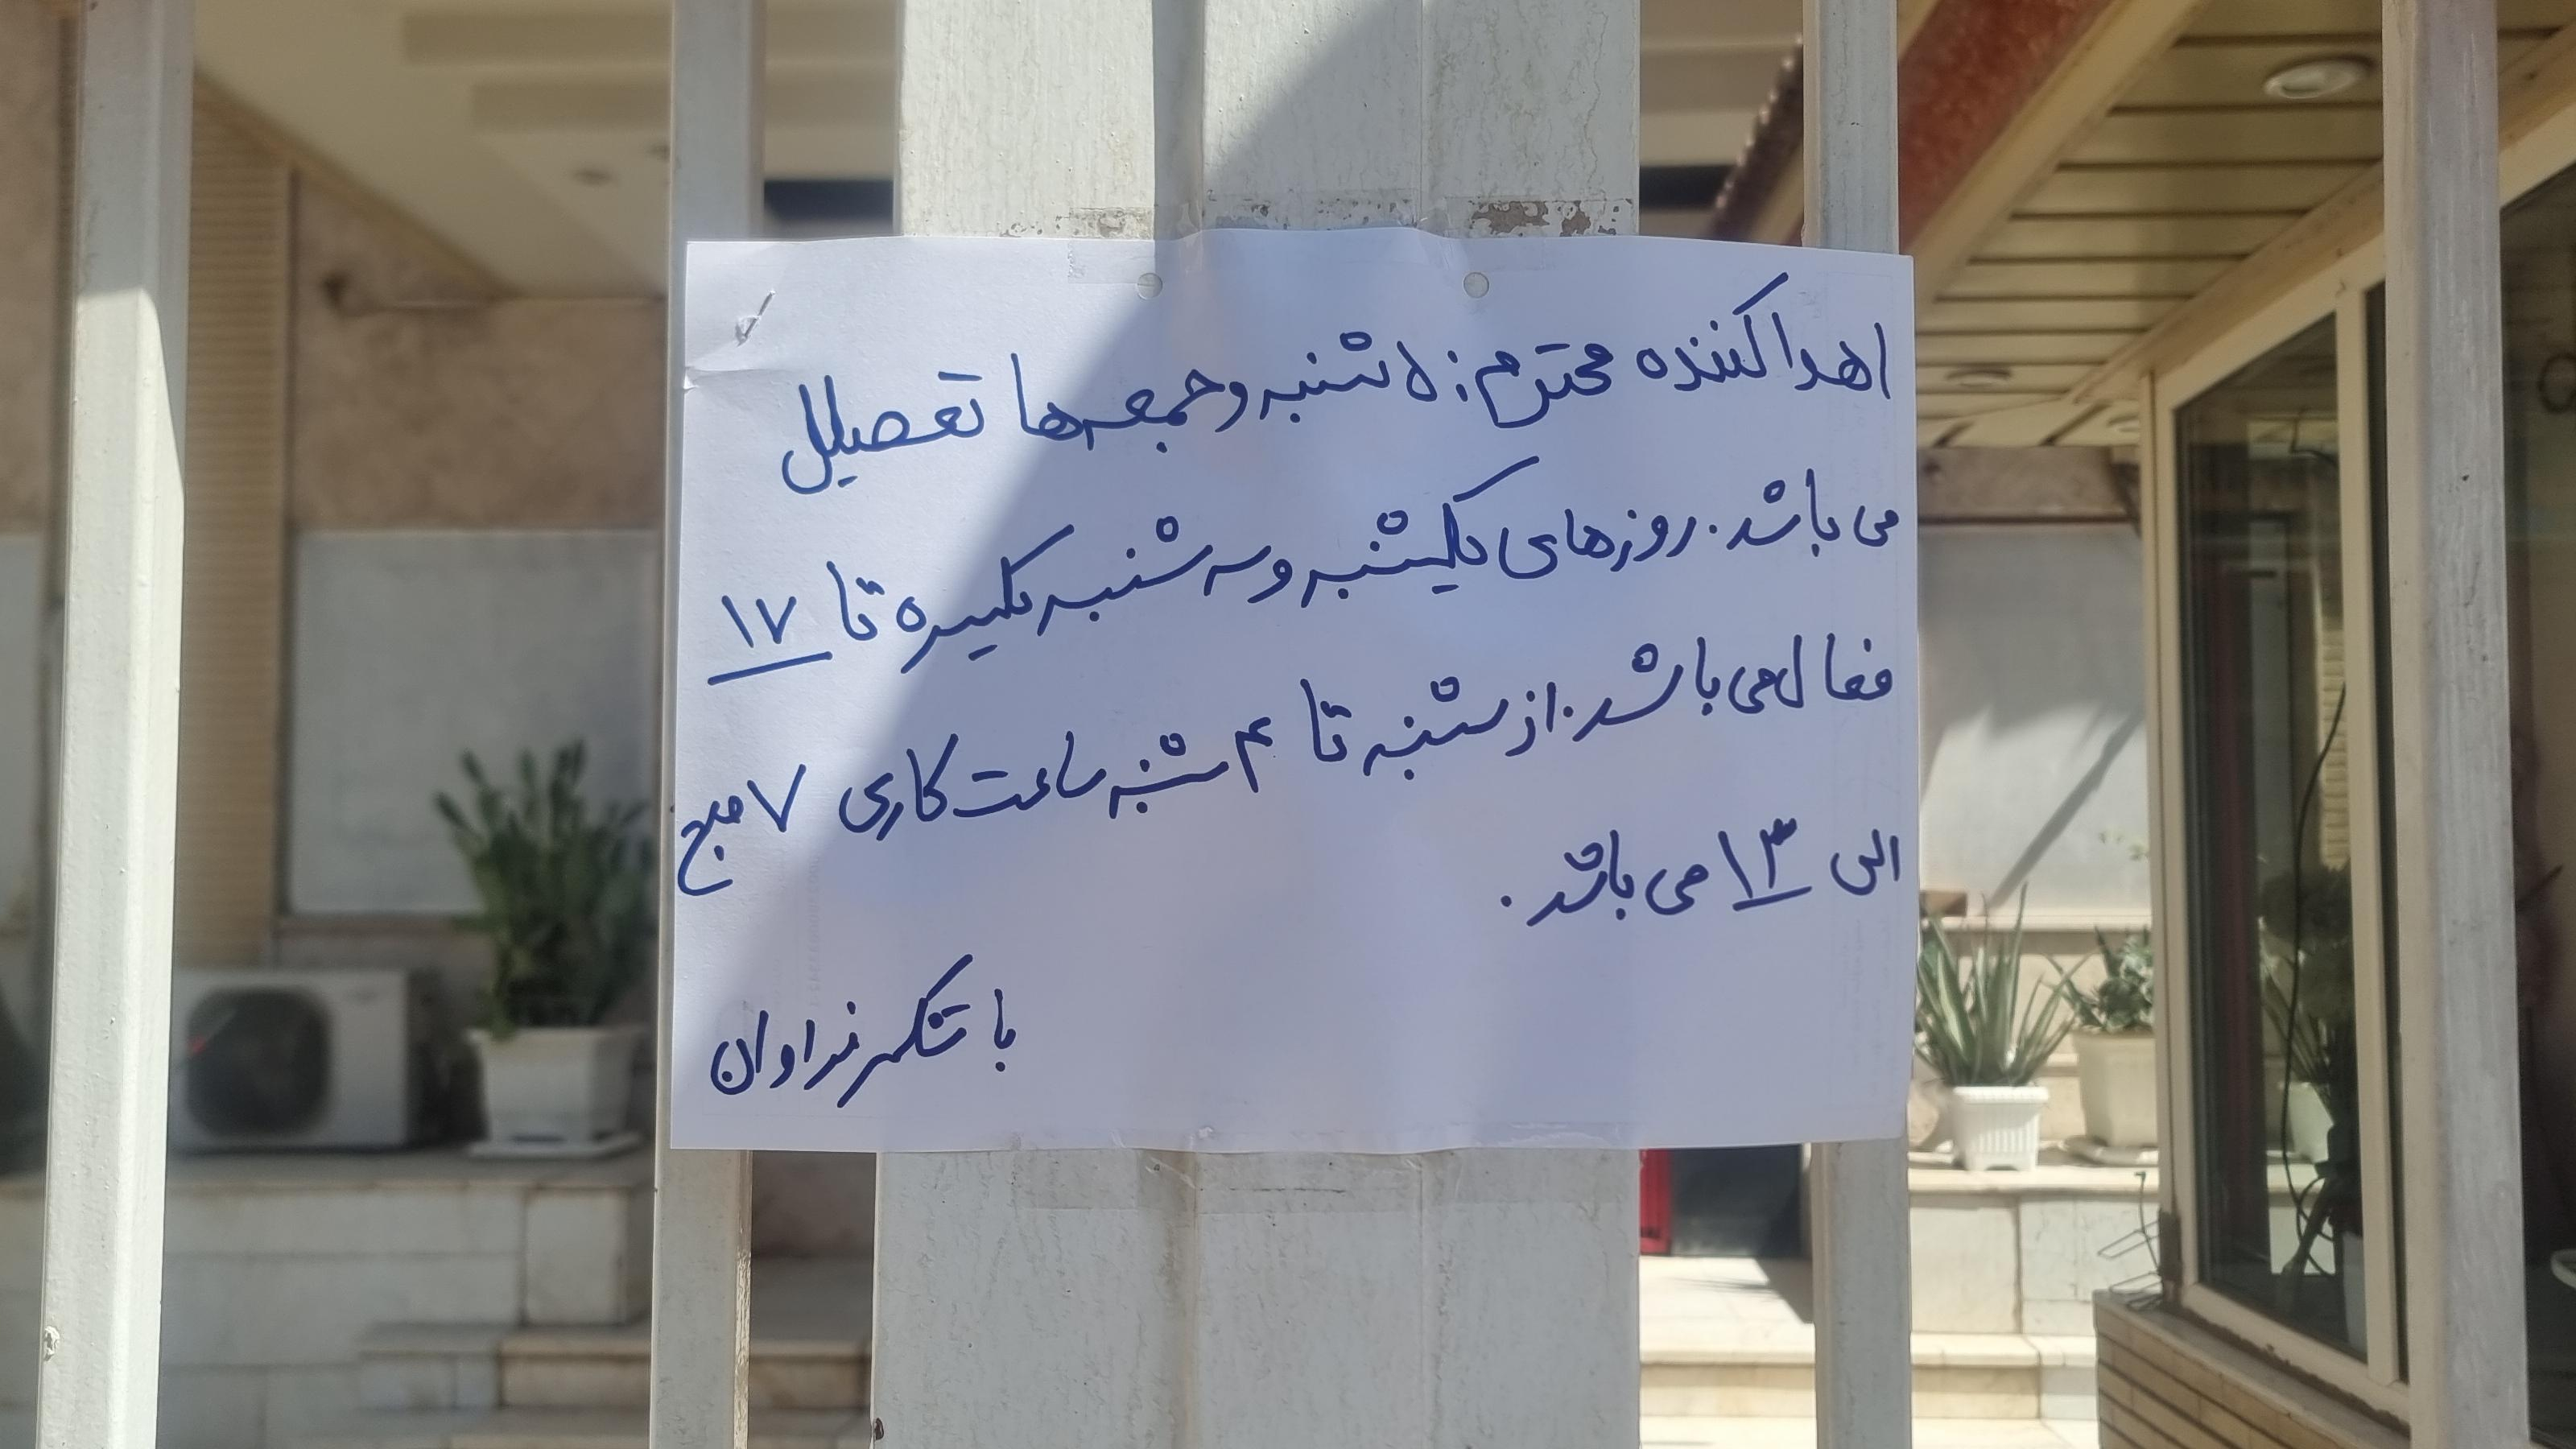 اهدا کننده محترم: ۵ شنبه و جمعه ها تعصیل
می باشد. روزهای یکشنبه و سه شنبه یکسره تا ۱۷
فعال می باشد. از شنبه تا ۴ شنبه ساعت کاری ۷ صبح
الی ۱۳ می باشد.
با تشکر فراوان